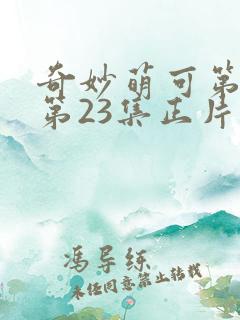 奇妙萌可第
第23集正片
冯导练
未经同意禁止转载